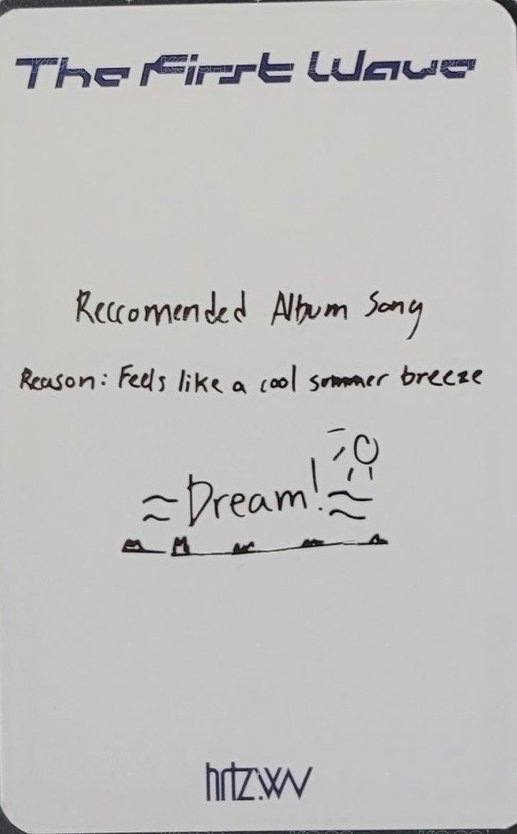 The First Wave
Reccomended Album Song
Reason: Feels like a cool summer breeze
Dream!
hrtz.wv